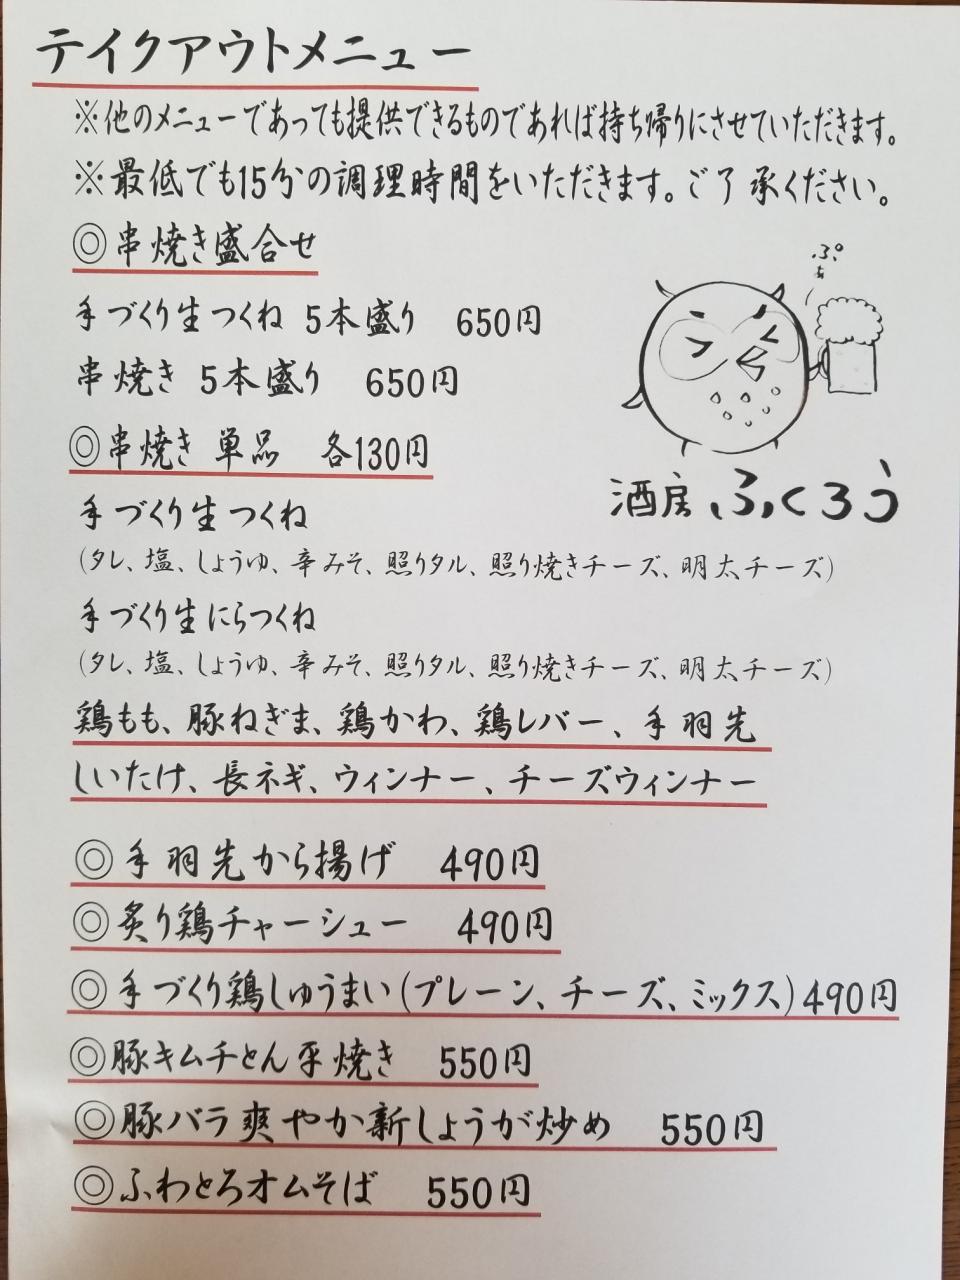 テイクアウトメニュー
※他のメニューであっても提供できるものであれば持ち帰りにさせていただきます。
※最低でも15分の調理時間をいただきます。ご了承ください。
◎串焼き盛合せ
手づくり生つくね 5本盛り 650円
串焼き 5本盛り 650円
ぷぁ
◎串焼き 単品 各130円
酒房ふくろう
手づくり生つくね
(タレ、塩、しょうゆ、辛みそ、照りタル、照り焼きチーズ、明太チーズ)
手づくり生にらつくね
(タレ、塩、しょうゆ、辛みそ、照りタル、照り焼きチーズ、明太チーズ)
鶏もも、豚ねぎま、鶏かわ、鶏レバー、手羽先
しいたけ、長ネギ、ウィンナー、チーズウィンナー
◎手羽先から揚げ 490円
◎炙り鶏チャーシュー 490円
◎手づくり鶏しゅうまい(プレーン、チーズ、ミックス)490円
◎豚キムチとん平焼き 550円
◎豚バラ爽やか新しょうが炒め 550円
◎ふわとろオムそば 550円